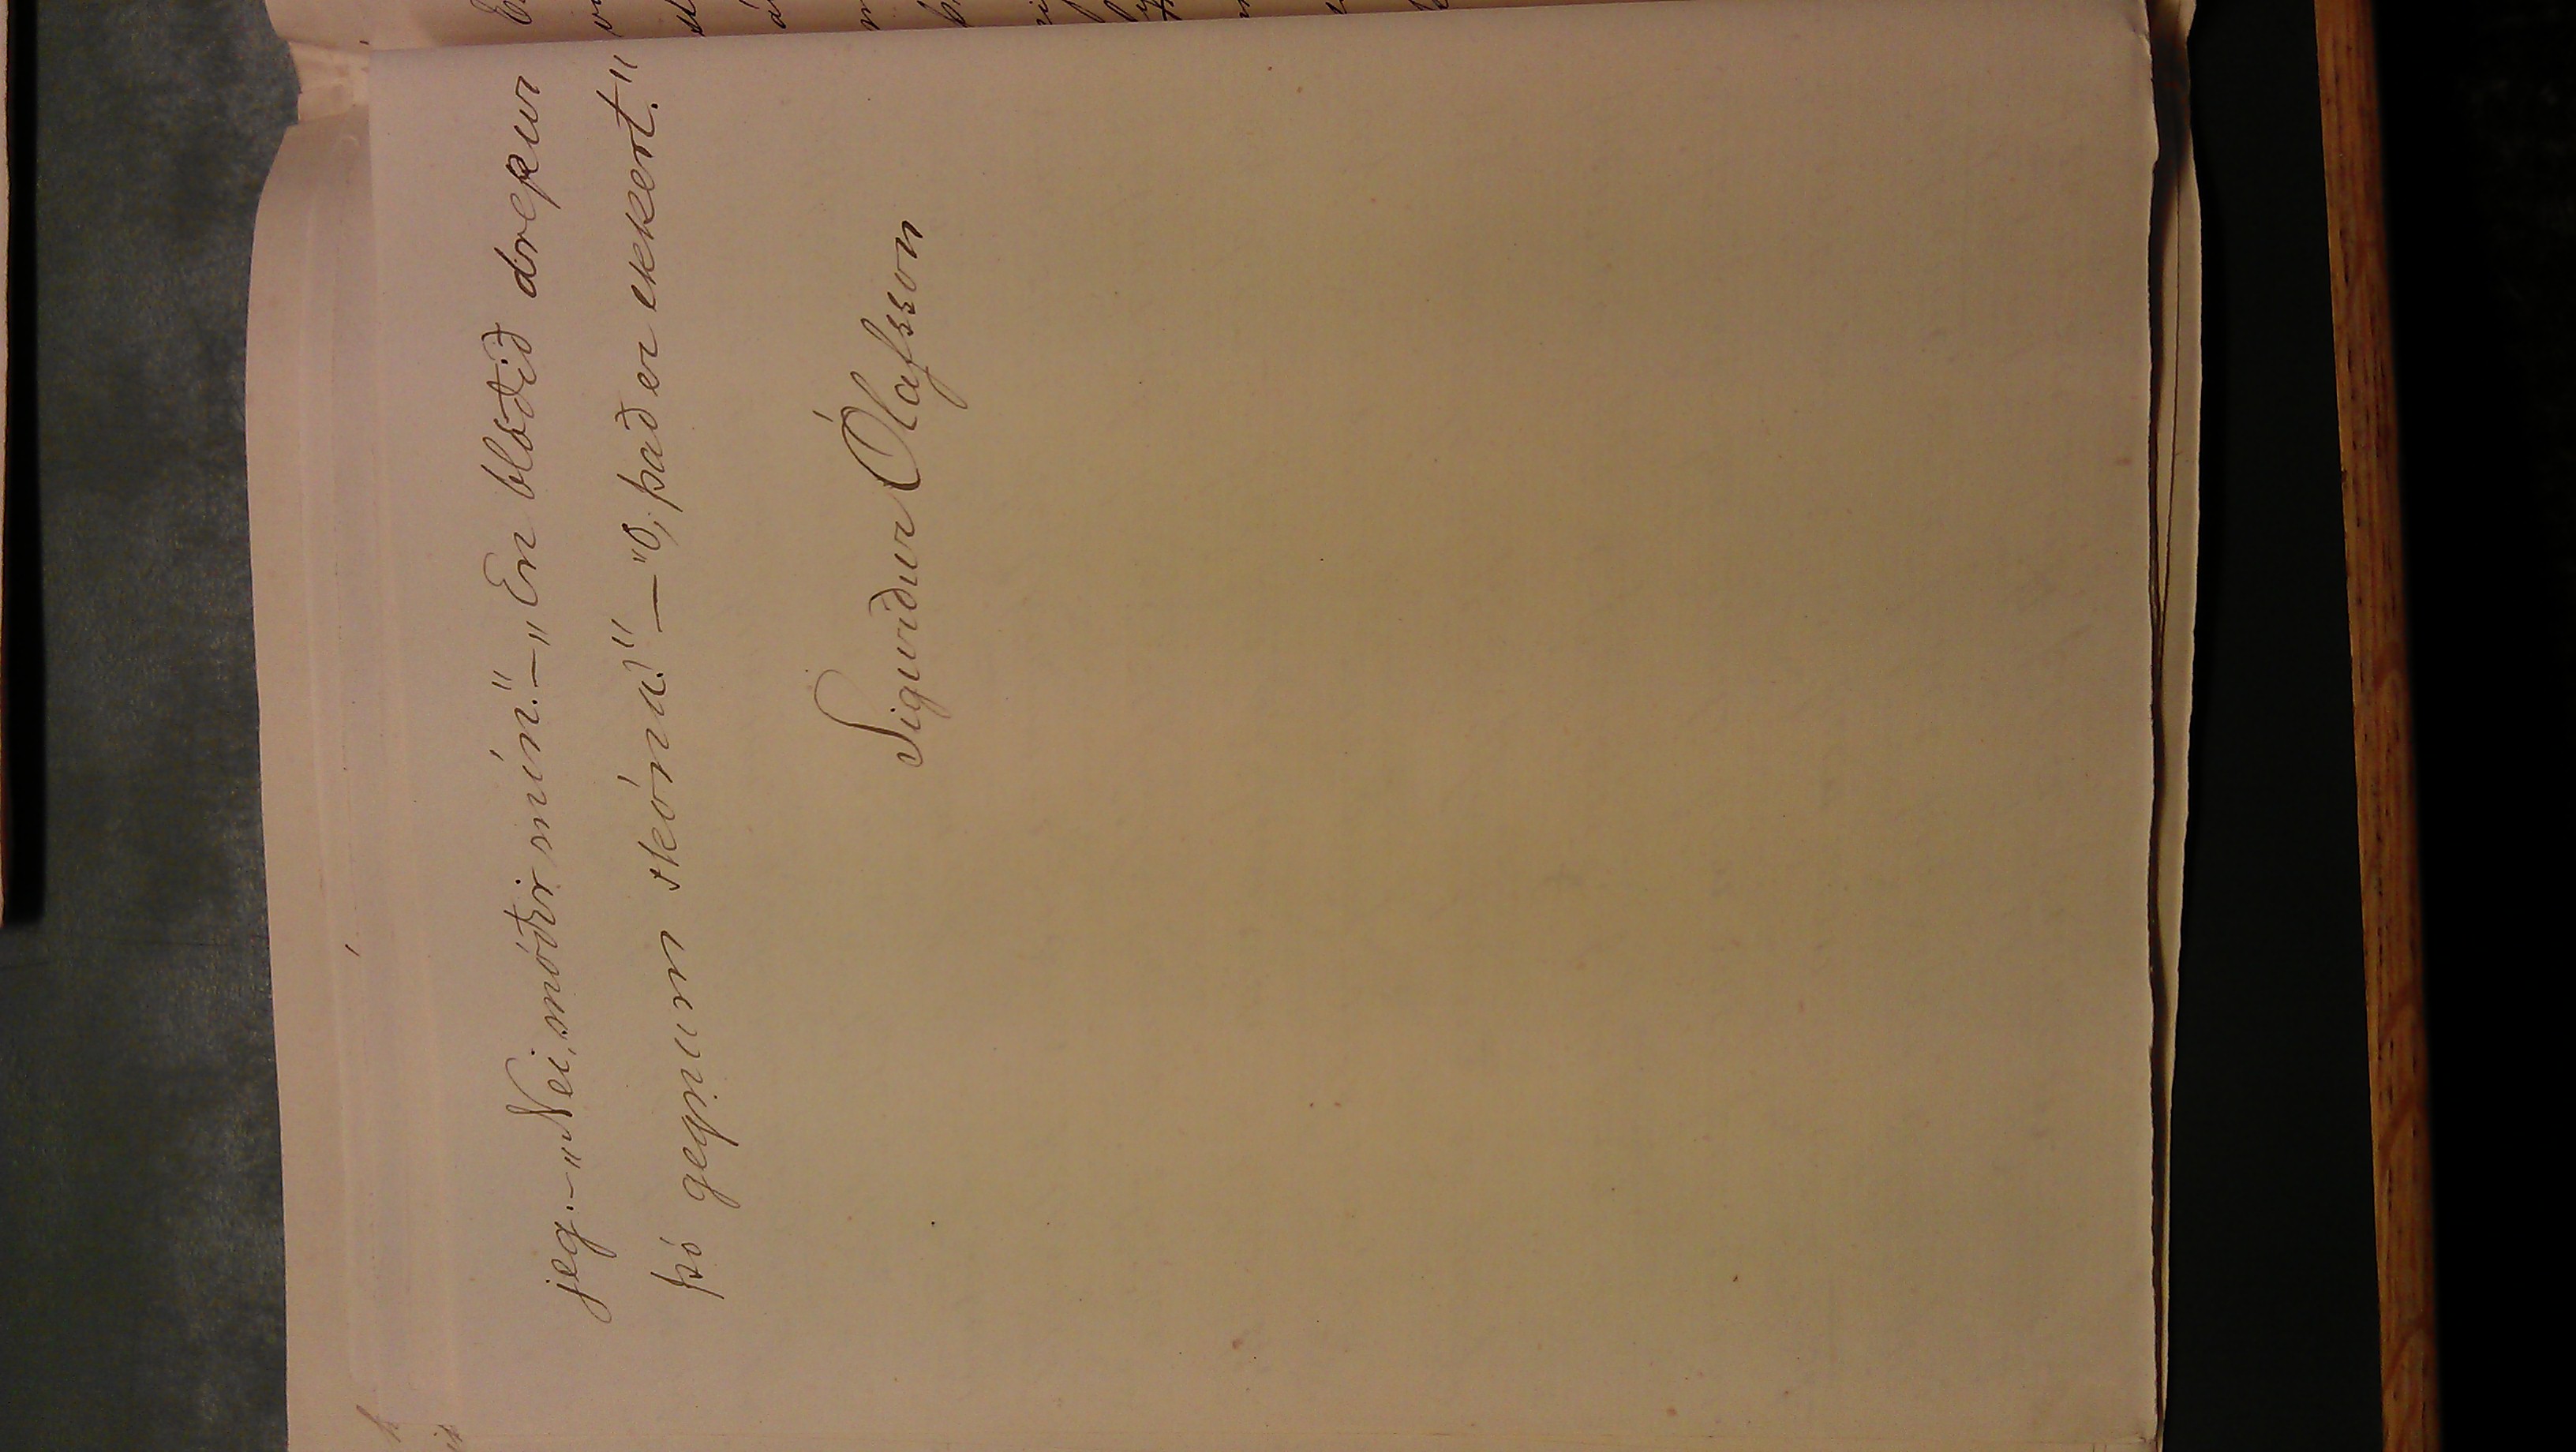 jeg. – „Nei, móðir mín.“ – „En blóðið drepur
þó gegnum skóna.“ – „O, það er ekkert.“
Sigurður Ólafsson